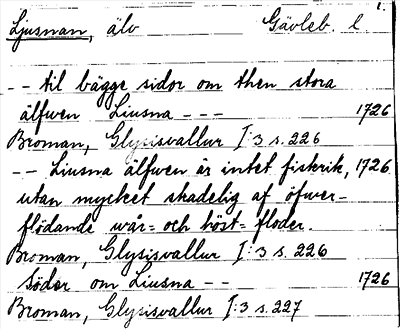 Ljusnan, älv Gävleb. l. 1.
-- til bägge sidor om then stora
älfwen Liusna --- 1726
Broman, Glysisvallur I:3 s. 226
-- Liusna älfwen är intet fiskrik, 1726
utan mycket skadelig af öfwer-
flödande wår= och höst= floder.
Broman, Glysisvallur I:3 s. 226
Söder om Liusna -- 1726
Broman, Glysisvallur I:3 s. 227